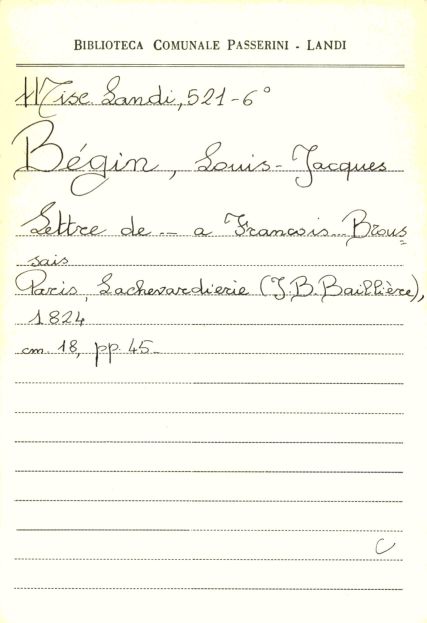 BIBLIOTECA COMUNALE PASSERINI - LANDI
Misc. Landi, 521-6°
Bégin, Louis-Jacques
Lettre de — a Francois Brous=
sais
Paris, Lachevardierie (J.B. Baillière),
1824
cm. 18, pp. 45-
C